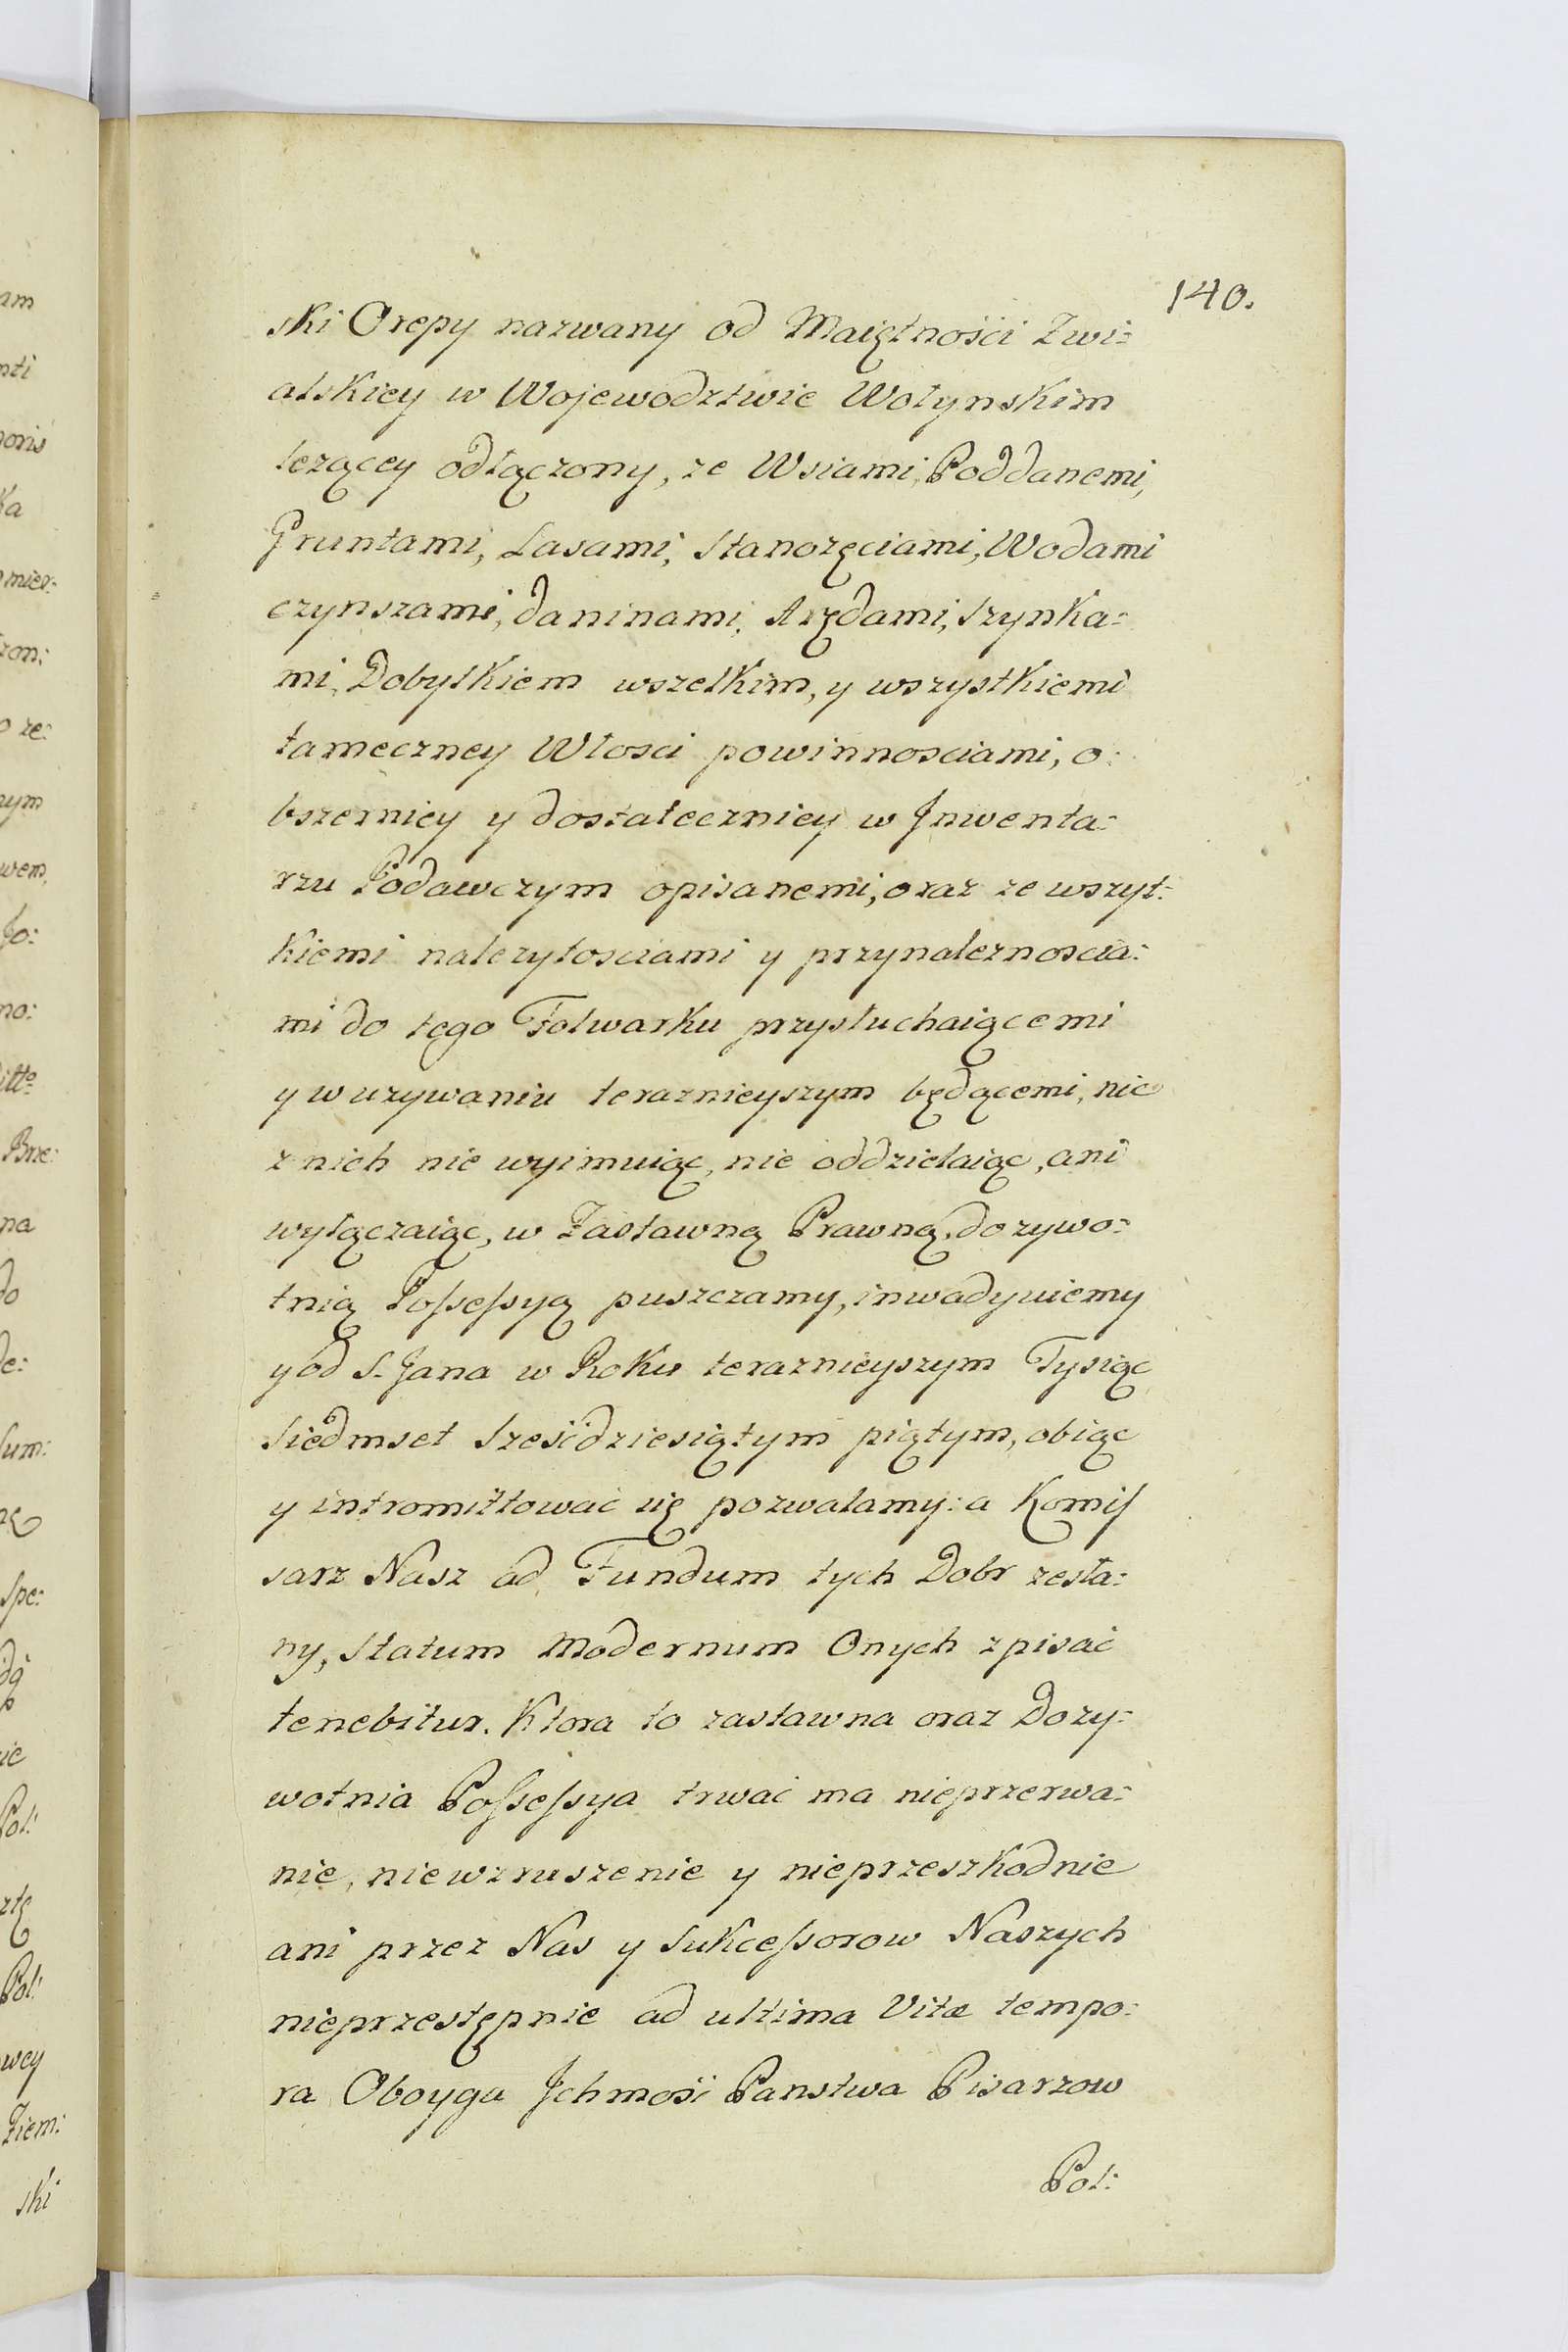 140.
ski Orepy nazwany od Maiętnośći Zwi:
alskiey w Wojewodztwie Wołynskim
lezącey odłączony, ze Wsiami, Poddanemi,
Gruntami, Lasami, Stanozęciami, Wodami
czynszami, daninami, Arędami, Szynka:
mi, Dobytkiem wszelkim, y wszystkiemi
tameczney Włosci powinnosciami, o:
bszerniey y dostateczniey w Jnwenta:
rzu Podawczym opisanemi, oraz ze wszyt:
kiemi nalezytosciami y przynaleznoscia:
mi do tego Folwarku przysłuchaiącemi
y w uzywaniu teraznieyszym będącemi, nic
z nich nie wyimuiąc, nie oddzielaiąc, ani
wyłączaiąc, w Zastawną Prawną, dozywo:
tnią Possessyą puszczamy, inwadyuiemy
y od S. Jana w Roku teraznieyszym Tysiąc
Siedmset Sześćdziesiątym piątym, obiąc
y intromittować się pozwalamy: a Komis
sarz Nasz ad Fundum tych Dobr zesła:
ny, Statum Modernum Onych zpisać
tenebitur. Ktora to zastawna oraz Dozy:
wotnia Possessya trwać ma nieprzerwa:
nie, niewzruszenie y nieprzeszkodnie
ani przez Nas y Sukcessorow Naszych
nieprzestępnie ad ultima Vitæ tempo:
ra Oboyga Jchmość Panstwa Pisarzow
Pol:
am
nti
noris
ka
mier:
zon:
o ze:
nym
wem,
Jo:
no:
itto
Brze:
na
do
de:
Sum:
nę
Spe:
dą
nie
Pol:
ztę
Pol:
wey
Ziem:
ski